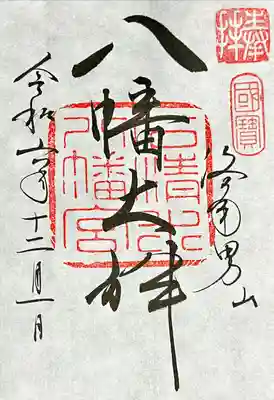 奉拝
國寶
洛南男山
八幡大神
石清水
八幡宮
令和六年十二月一日